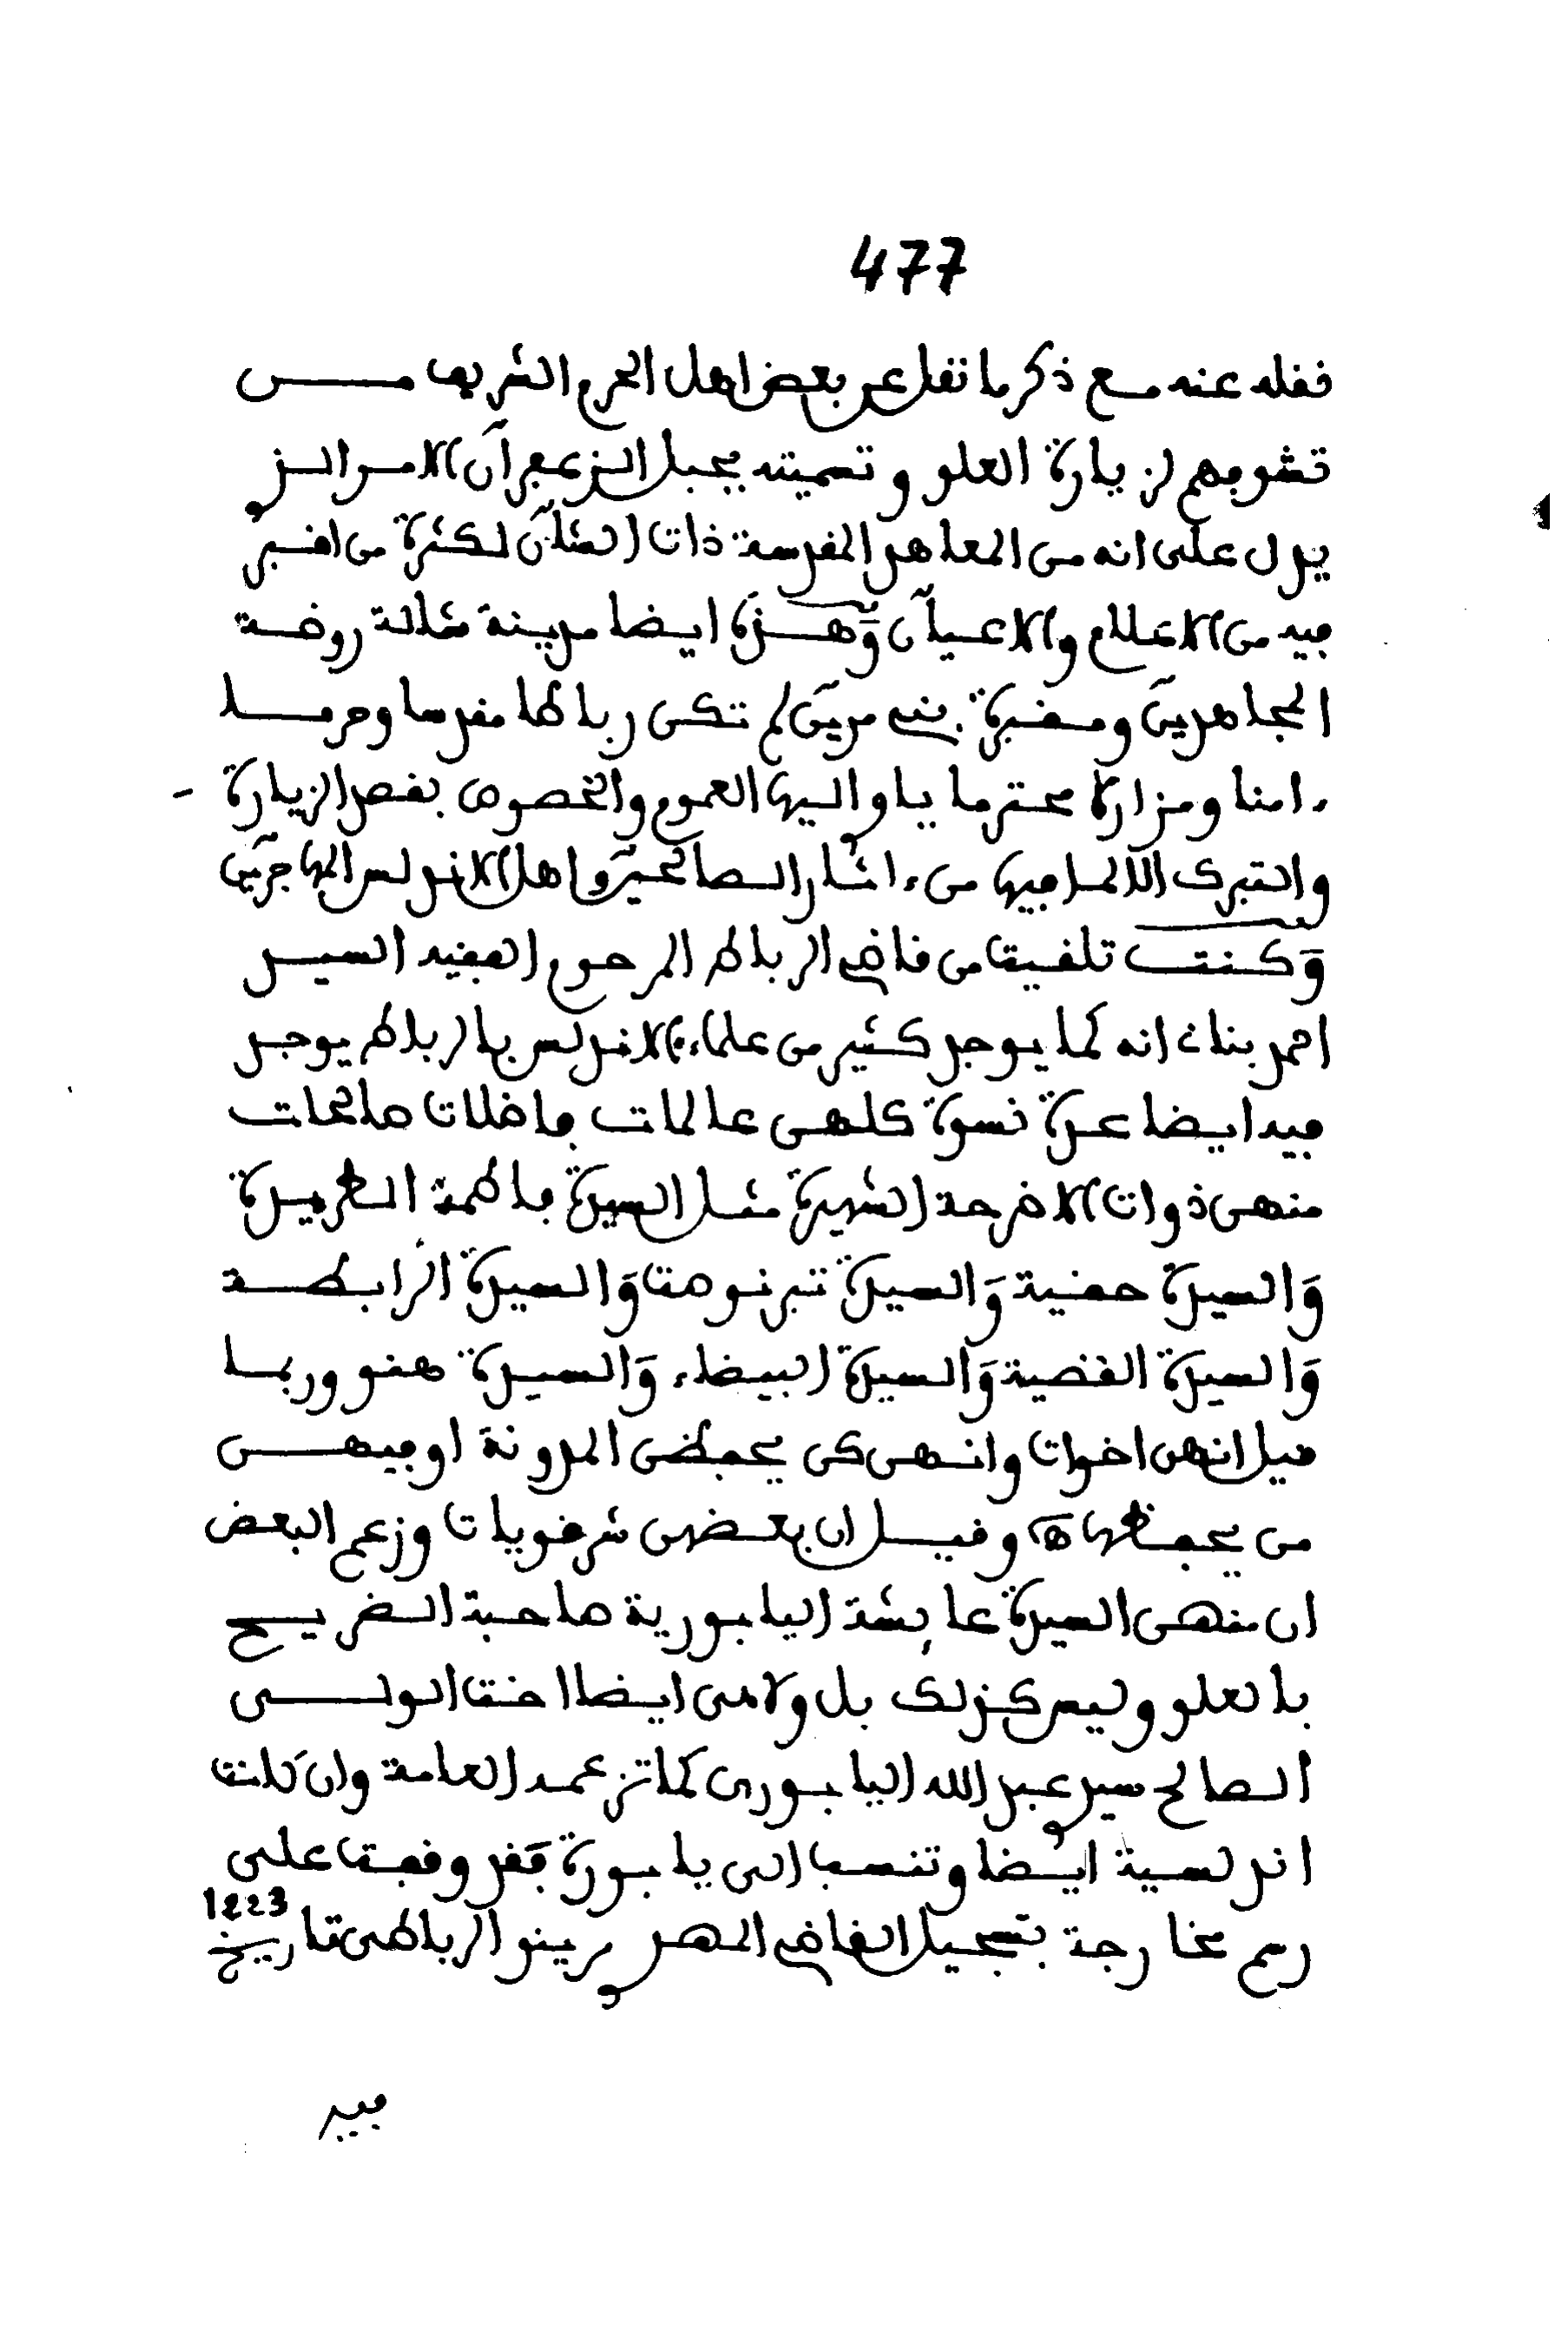 477
نقله عنه مع ذكر ما نقل عن بعض اهل الحرم الشريف مــن
تشوفهم لزيارة العلو وتسميته بجبل الزعفران الامر الذي
يدل على انه من المعاهد المقدسة ذات الشأن لكثرة من اقبر
فيه من الاعلام والاعيان وهــذه ايضا مدينة شالة روضــة
المجاهدين ومقبرة بني مرين لم تكن رباطا مقدسا وحرمــا
ءامنا ومزارة محترما ياوا اليها العموم والخصوص بقصد الزيارة -
والتبرك الا لما فيها من ءاثار الصالحين واهل الاندلس المهاجرين
وكنت تلقيت من قاضي الرباط المرحوم الفقيه السيــد
احمد بنانى انه كما يوجد كثير من علماء الاندلس بالرباط يوجد
فيه ايضا عدة نسوة كلهن عالمات فاضلات صالحات
منهن ذوات الاضرحة الشهيرة مثل السيدة فاطمة الطريدة
والسيدة حفية والسيدة تبرنوصت والسيدة الرابطــة
والسيدة القصية والسيدة البيضاء والسيدة هنو وربمــا
قيل انهن اخوات وانهن كن يحفظن المدونة او فيهــن
من يحفظها ه وقيــل ان بعضهن شرقويات وزعم البعض
ان منهن السيدة عايشة اليابورية صاحبة الضريــح
بالعلو وليس كذلك بل ولا هى ايضا اخت الولــى
الصالح سيد عبد الله اليابورى كما تزعمه العامة وان كانت
اندلسية ايضا وتنسب الى يابورة فقد وقفت على
رسم مخارجة بتسجيل القاضي المهدي مرينو الرباطى تاريخ 1223
فيه